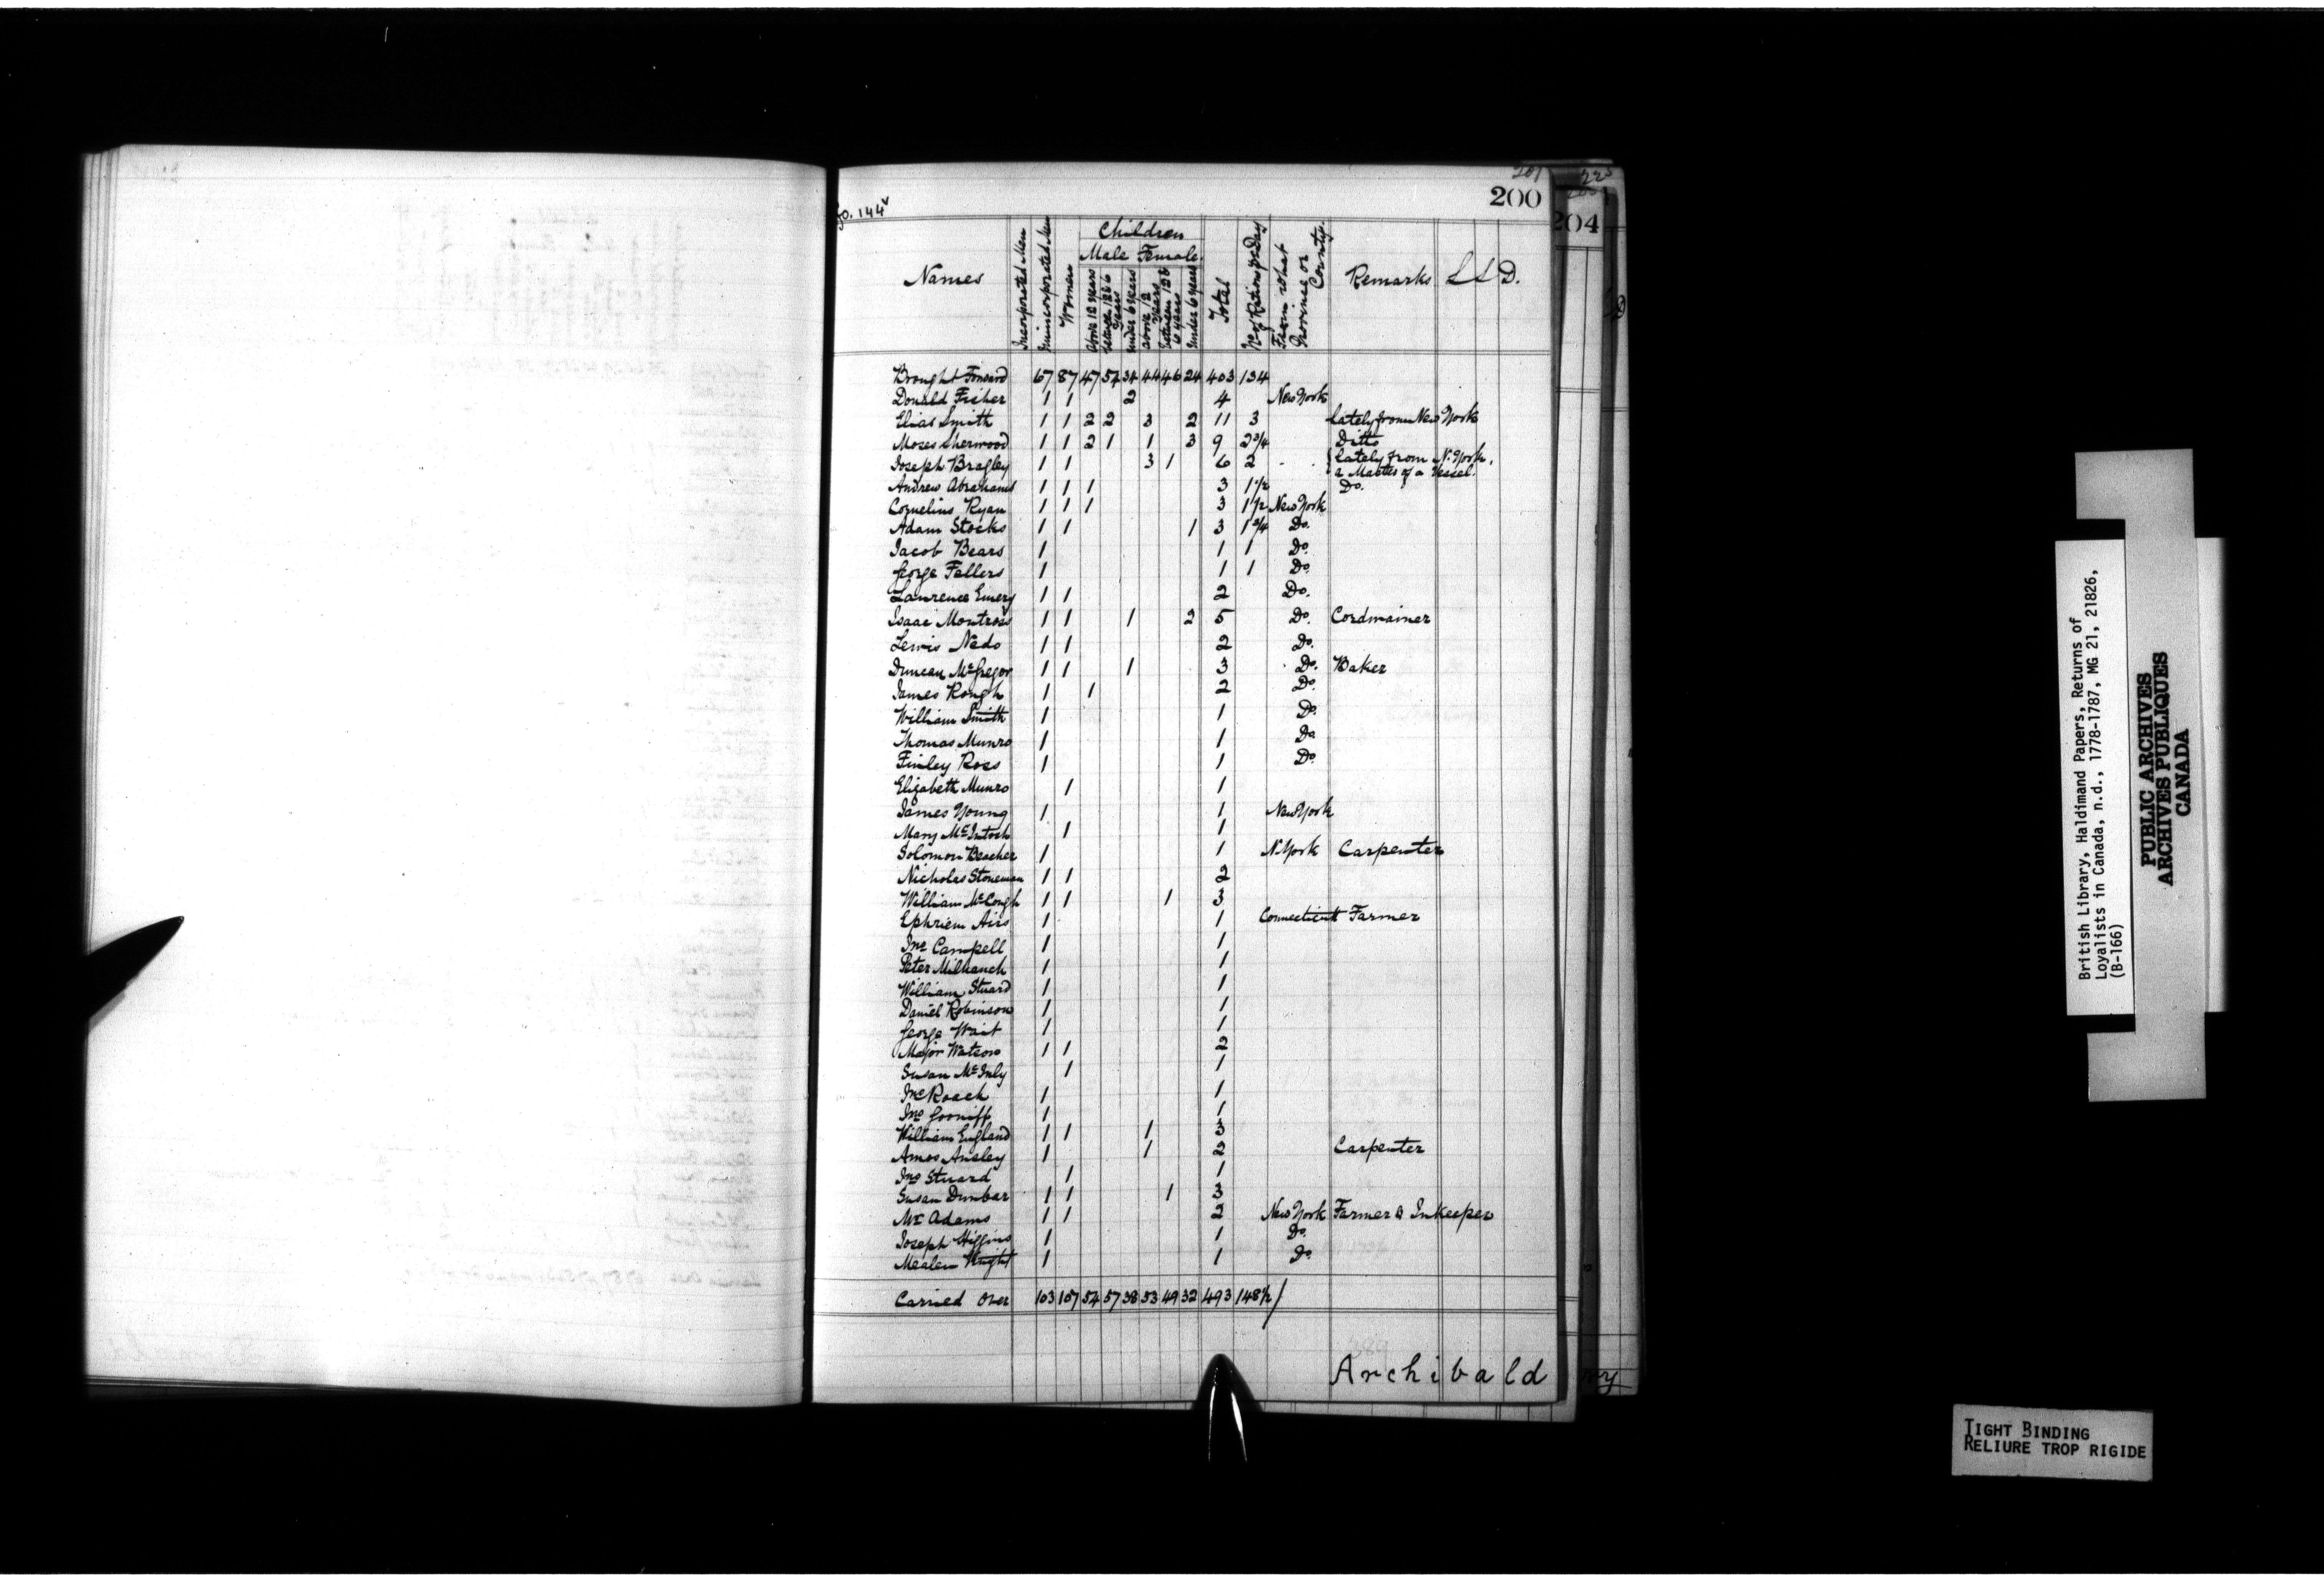 201
200
fo. 144v
Names Incorporated Men Unincorporated Men Women Children Male Female Above 12 years between 12 & 6 Years under 6 years above 12 Years between 12 & 6 years Under 6 years Total No. of Rations pr Day From what Province or County. Remarks L S D.
Brought Forward 67 87 47 54 34 44 46 24 403 134
Donald Fisher 1 1 2 4 New York
Elias Smith 1 1 2 2 3 2 11 3 Lately from New York
Moses Sherwood 1 1 2 1 1 3 9 2 3/4 Ditto
Joseph Bragley 1 1 3 1 6 2 Lately from N. York,
a Master of a Vessel.
Andrew Abrahams 1 1 1 3 1 1/2 Do.
Cornelius Ryan 1 1 1 3 1 1/2 New York
Adam Stocks 1 1 1 3 1 3/4 Do.
Jacob Bears 1 1 1 Do.
George Fellers 1 1 1 Do.
Lawrence Emery 1 1 2 Do.
Isaac Montross 1 1 1 2 5 Do. Cordwainer
Lewis Nedo 1 1 2 Do.
Duncan McGregor 1 1 1 3 Do. Baker
James Rough 1 1 2 Do.
William Smith 1 1 Do.
Thomas Munro 1 1 Do.
Finley Ross 1 1 Do.
Elizabeth Munro 1 1
James Young 1 1 New York
Mary McIntosh 1 1
Solomon Beacher 1 1 N. York Carpenter
Nicholas Stoneman 1 1 2
William McCough 1 1 1 3
Ephriem Airs 1 1 Connecticutt Farmer
Jno. Campell 1 1
Peter Milhanch 1 1
William Stuard 1 1
Daniel Robinson 1 1
George Wait 1 1
Major Watson 1 1 2
Susan McInly 1 1
Jno. Roach 1 1
Jno. Gooniff 1 1
William England 1 1 1 3
Amos Ansley 1 1 2 Carpenter
Jno. Stuard 1 1
Susan Dunbar 1 1 1 3
Mc Adams 1 1 2 New York Farmer & Inkeeper
Joseph Higgins 1 1 Do.
Mealem Knight 1 1 Do.
Carried Over 103 107 54 57 38 53 49 32 493 148 1/2
Archibald
204
British Library, Haldimand Papers, Returns of
Loyalists in Canada, n.d., 1778-1787, MG 21, 21826,
(B-166)
PUBLIC ARCHIVES
ARCHIVES PUBLIQUES
CANADA
TIGHT BINDING
RELIURE TROP RIGIDE